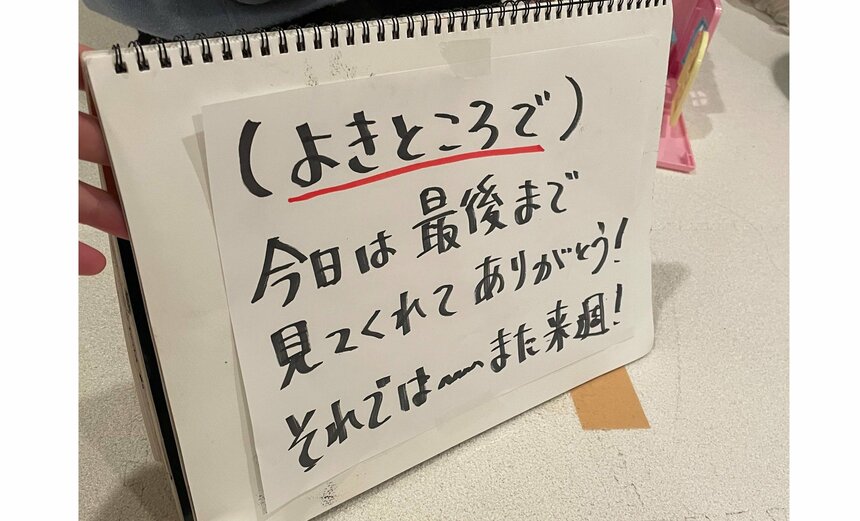 (よきところで)
今日は最後まで
見てくれてありがとう!
それでは〰また来週!